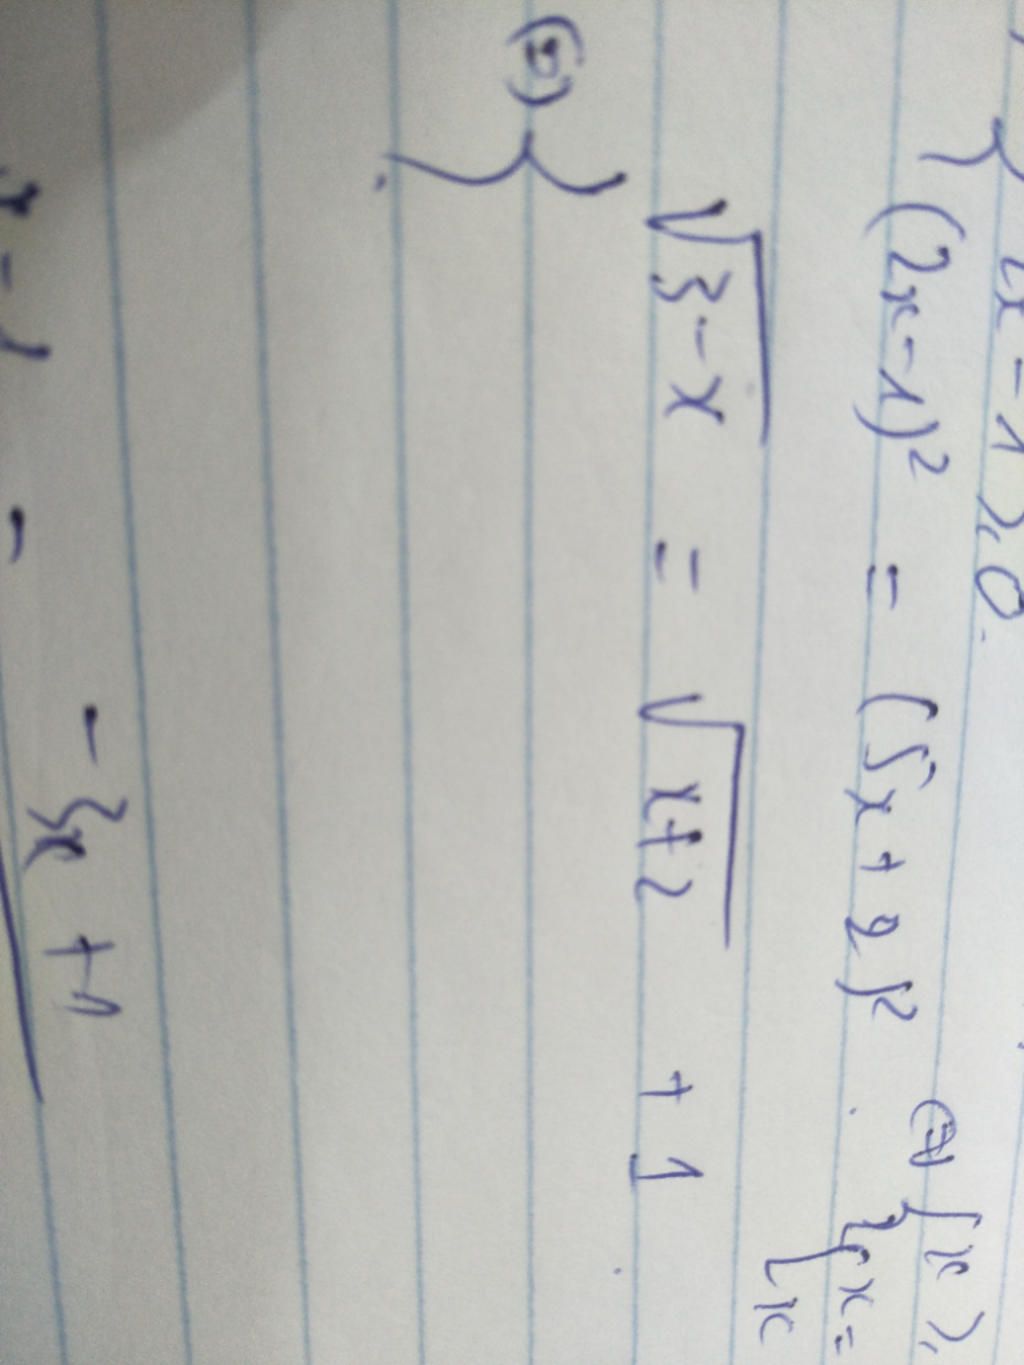 2x - 1 ⩾ 0.
(2x-1)² = (5x+2)² ⇔ { x ⩾
{ x =
x
√(3-x) = √(x+2) + 1
⇔ {
= -3x + 1